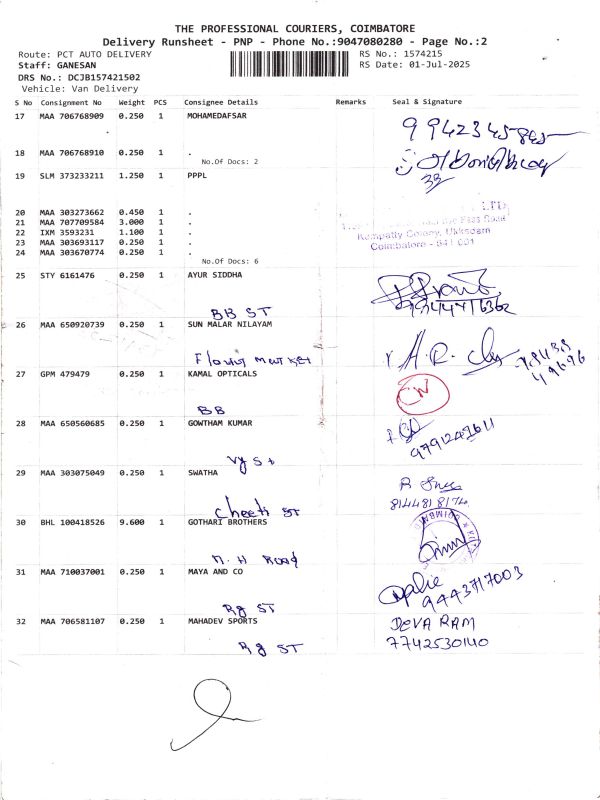 THE PROFESSIONAL COURIERS, COIMBATORE
Delivery Runsheet - PNP - Phone No.:9047080280 - Page No.:2
Route: PCT AUTO DELIVERY RS No.: 1574215
Staff: GANESAN RS Date: 01-Jul-2025
DRS No.: DCJB157421502
Vehicle: Van Delivery
S No Consignment No Weight PCS Consignee Details Remarks Seal & Signature
17 MAA 706768909 0.250 1 MOHAMEDAFSAR
9942345845
18 MAA 706768910 0.250 1 .
No.Of Docs: 2
33
19 SLM 373233211 1.250 1 PPPL
LTD
20 MAA 303273662 0.450 1 .
21 MAA 707709584 3.000 1 .
22 IXM 3593231 1.100 1 .
Kempatty Colony, Ukkadam
23 MAA 303693117 0.250 1 .
Coimbatore - 641 001
24 MAA 303670774 0.250 1 .
No.Of Docs: 6
25 STY 6161476 0.250 1 AYUR SIDDHA
9444716362
BB ST
26 MAA 650920739 0.250 1 SUN MALAR NILAYAM
Flower market
A.R.
49696
27 GPM 479479 0.250 1 KAMAL OPTICALS
BB
28 MAA 650560685 0.250 1 GOWTHAM KUMAR
9791247611
Vy St
29 MAA 303075049 0.250 1 SWATHA
8144818174
Cheeti ST
30 BHL 100418526 9.600 1 GOTHARI BROTHERS
N.H Road
31 MAA 710037001 0.250 1 MAYA AND CO
9443717003
Rg ST
32 MAA 706581107 0.250 1 MAHADEV SPORTS
DEVA RAM
7742530140
Rg ST